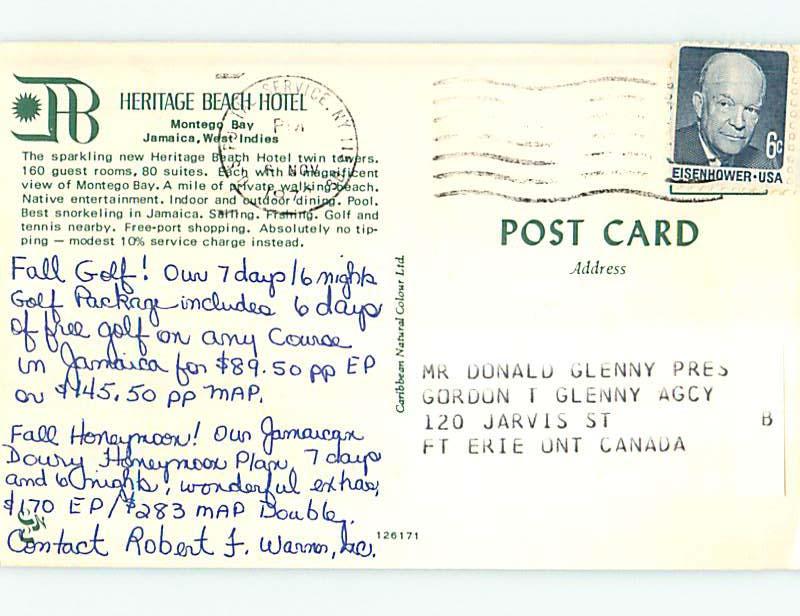 HERITAGE BEACH HOTEL
Montego Bay
Jamaica, West Indies
The sparkling new Heritage Beach Hotel twin towers.
160 guest rooms, 80 suites. Each with a magnificent
view of Montego Bay. A mile of private walking beach.
Native entertainment. Indoor and outdoor dining. Pool.
Best snorkeling in Jamaica. Sailing. Fishing. Golf and
tennis nearby. Free-port shopping. Absolutely no tip-
ping — modest 10% service charge instead.
Fall Golf! Our 7 days/6 nights
Golf Package includes 6 days
of free golf on any Course
in Jamaica for $89.50 pp EP
or $145.50 pp MAP.
Fall Honeymoon! Our Jamaican
Dowry Honeymoon Plan, 7 days
and 6 nights, wonderful extras,
$170 EP/$283 MAP Double.
Contact Robert F. Warner, Inc.
126171
Caribbean Natural Colour Ltd.
SERVICE, NY
PM
6 NOV
6c
EISENHOWER·USA
POST CARD
Address
MR DONALD GLENNY PRES
GORDON T GLENNY AGCY
120 JARVIS ST B
FT ERIE ONT CANADA